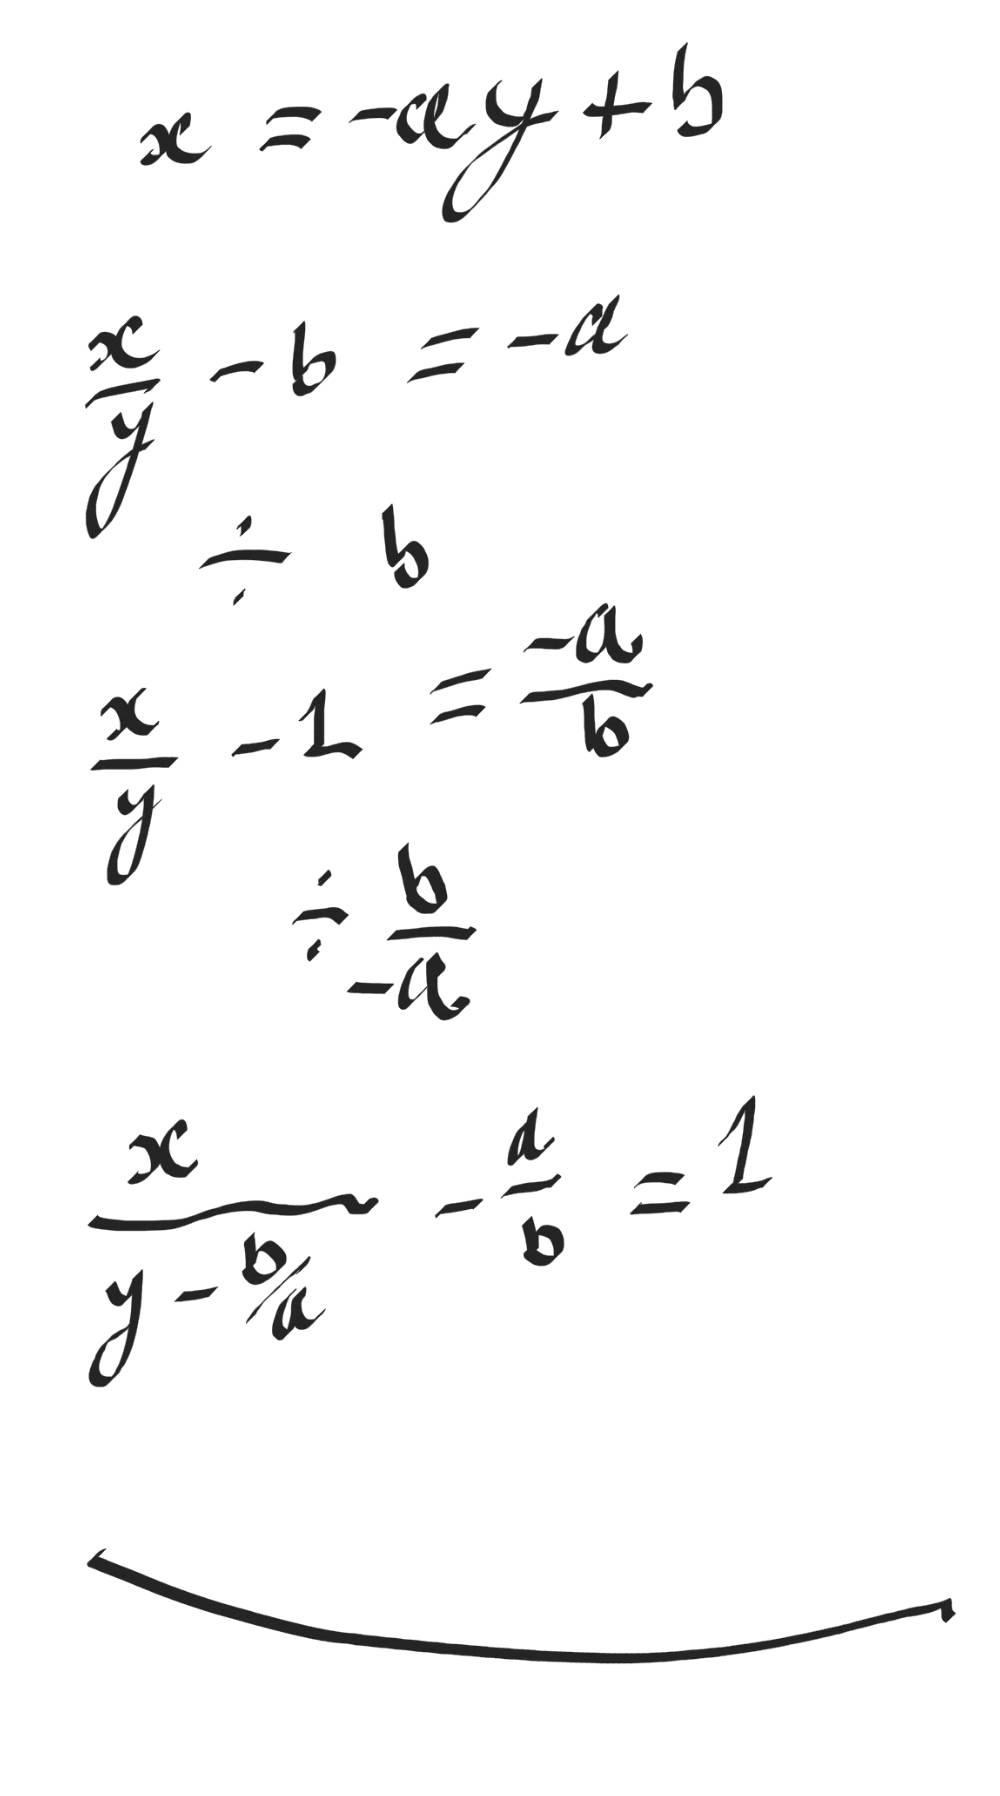 x = -ay + b
x/y - b = -a
÷ b
x/y - 1 = -a/b
÷ b/-a
x/(y - b/a) - a/b = 1